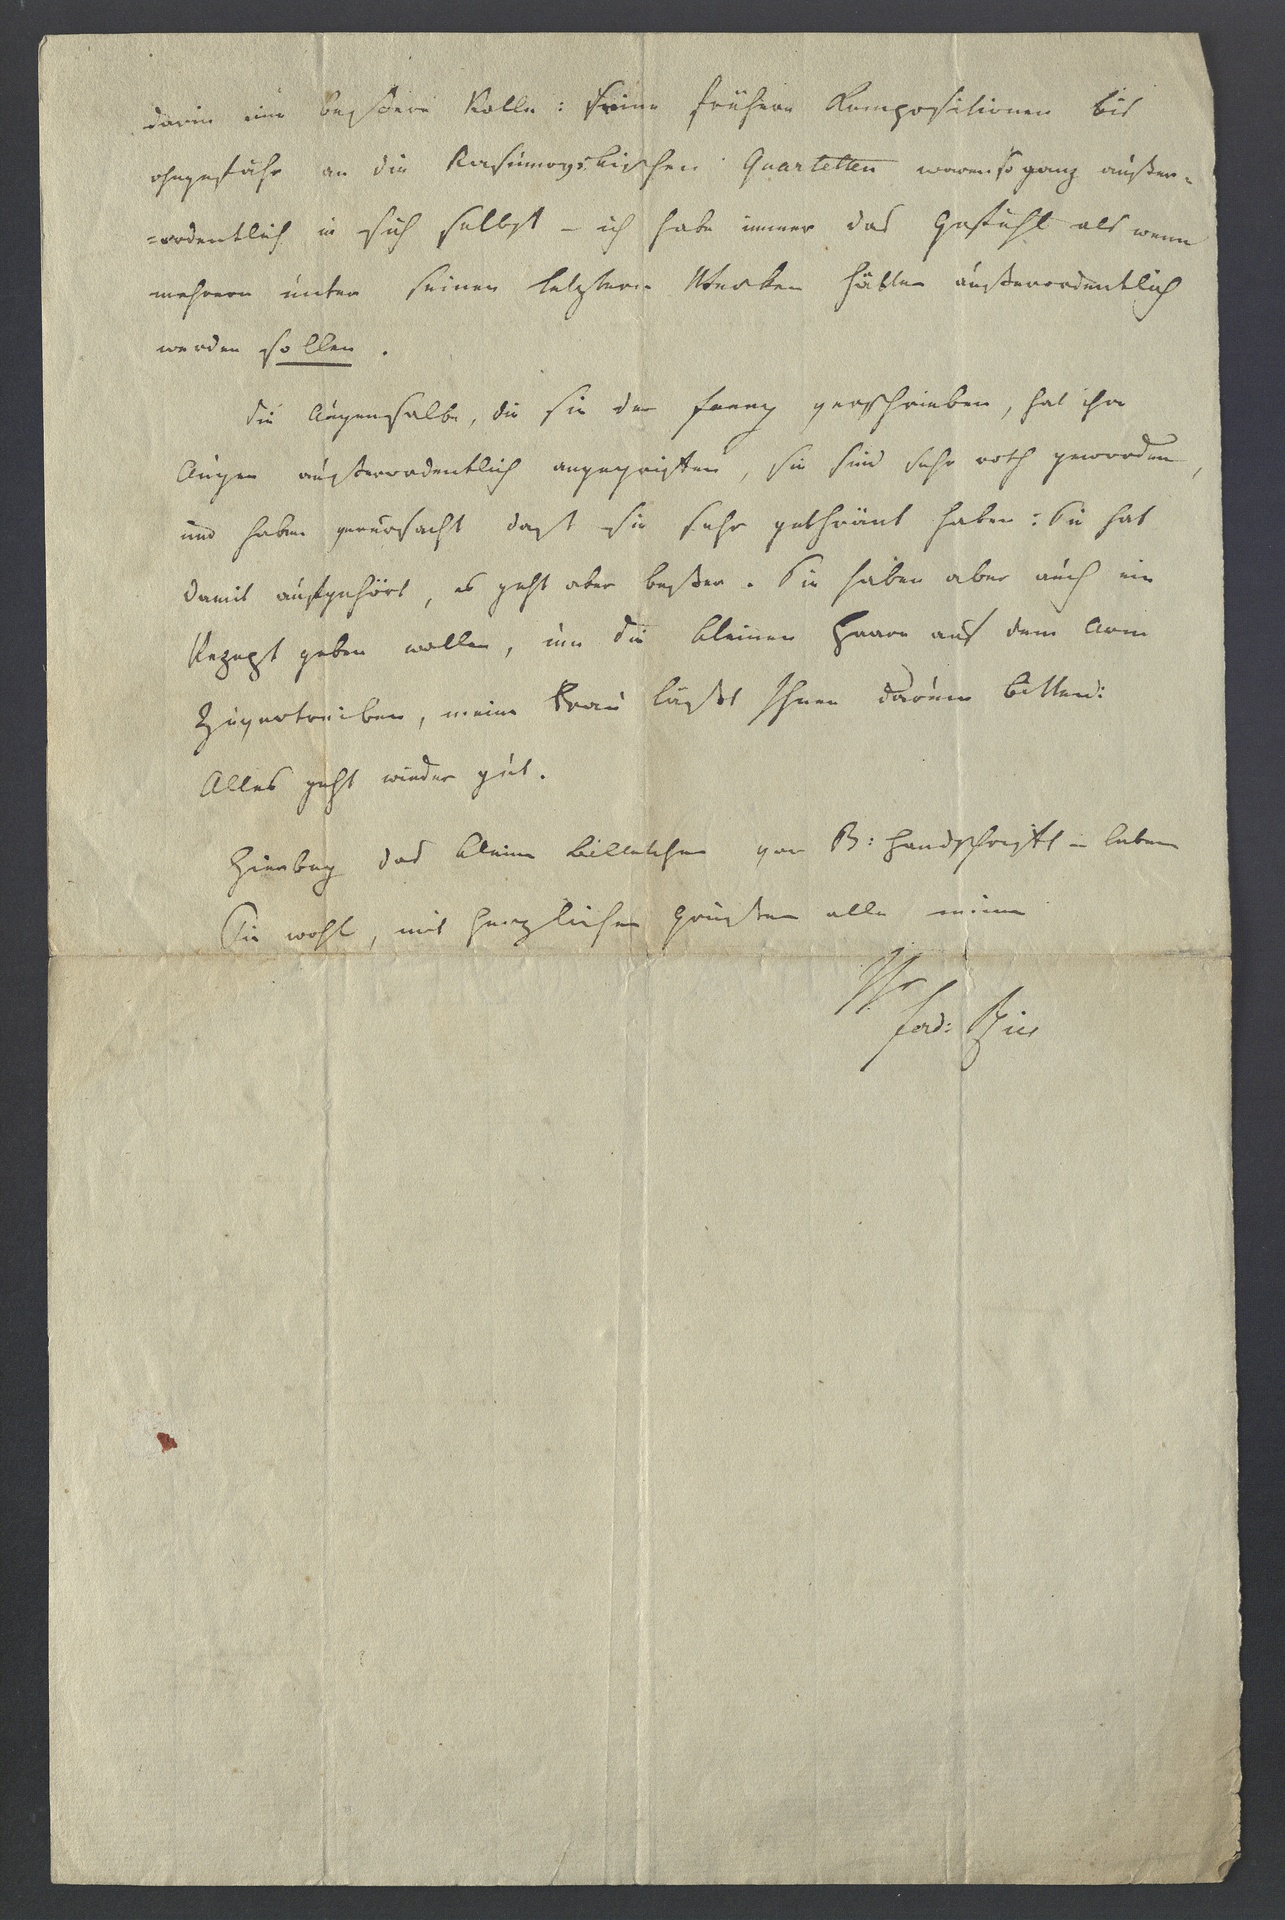 darin eine bessere Rolle: Seine frühern Kompositionen bis
ohngefähr an die Rasumovskischen Quartetten waren so ganz außer=
=ordentlich in sich selbst – ich habe immer das Gefühl als wenn
mehrere unter seinen letztern Werken hätten außerordentlich
werden sollen.
Die Augensalbe, die sie der Fanny verschrieben, hat ihr
Augen außerordentlich angegriffen, sie sind sehr roth geworden,
und haben verursacht daß sie sehr gethränt haben: Sie hat
damit aufgehört, es geht aber beßer. Sie haben aber auch ein
Rezept geben wollen, um die kleinen Haare auf dem Arm
zu vertreiben, meine Frau läßt Ihnen darum bitten:
Alles geht wieder gut.
Hierbey das kleine Billetchen von B: Handschrift – leben
Sie wohl, mit herzlichen Grüßen alle meine
Ihr
Ferd: Ries